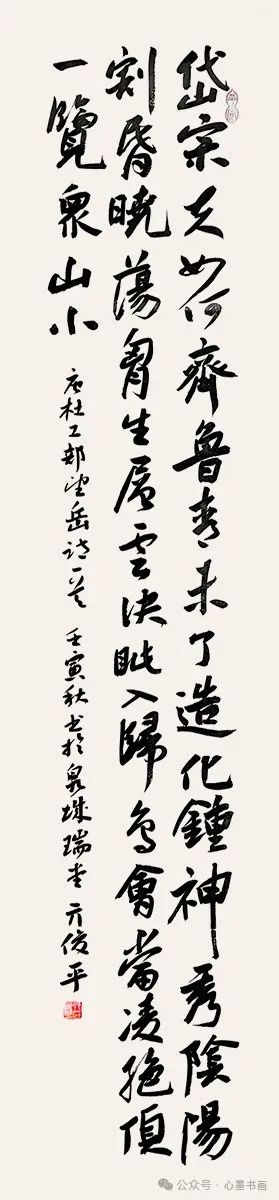 岱宗夫如何齊魯青未了造化鍾神秀陰陽
割昏曉蕩胷生層雲決眥入歸鳥會當凌絕頂
一覽眾山小
唐杜工部望岳詩一首 壬寅秋書於泉城瑞 亓俊平
公众号·心墨书画